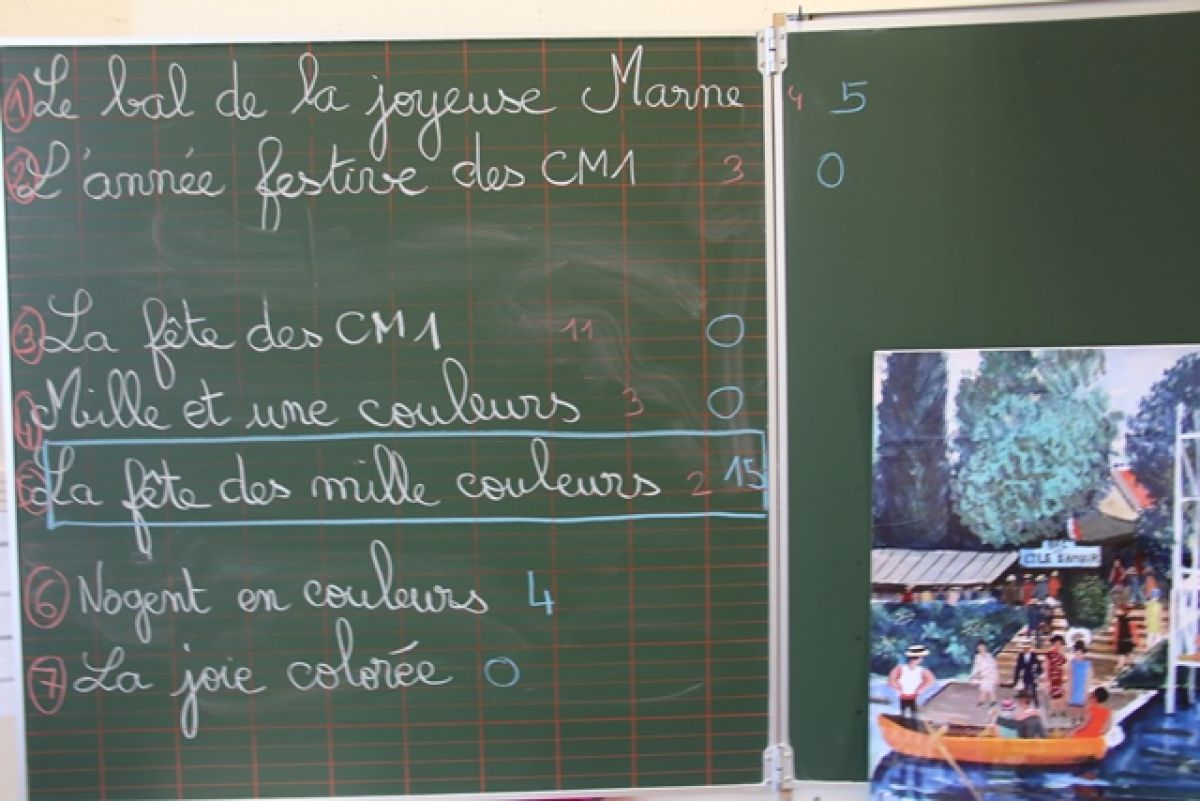 ① Le bal de la joyeuse Marne 4 5
② L'année festive des CM1 3 0
③ La fête des CM1 11 0
④ Mille et une couleurs 3 0
⑤ La fête des mille couleurs 2 15
⑥ Nogent en couleurs 4
⑦ La joie colorée 0